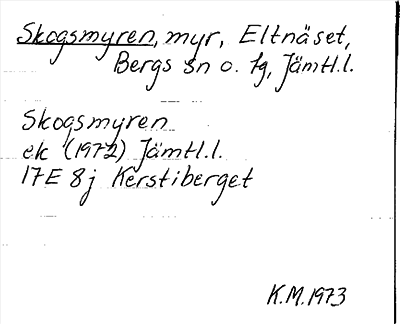 Skogsmyren, myr, Eltnäset,
Bergs sn o. tg, Jämtl.l.
Skogsmyren
ek (1972) Jämtl.l.
17E 8j Kerstiberget
K.M. 1973